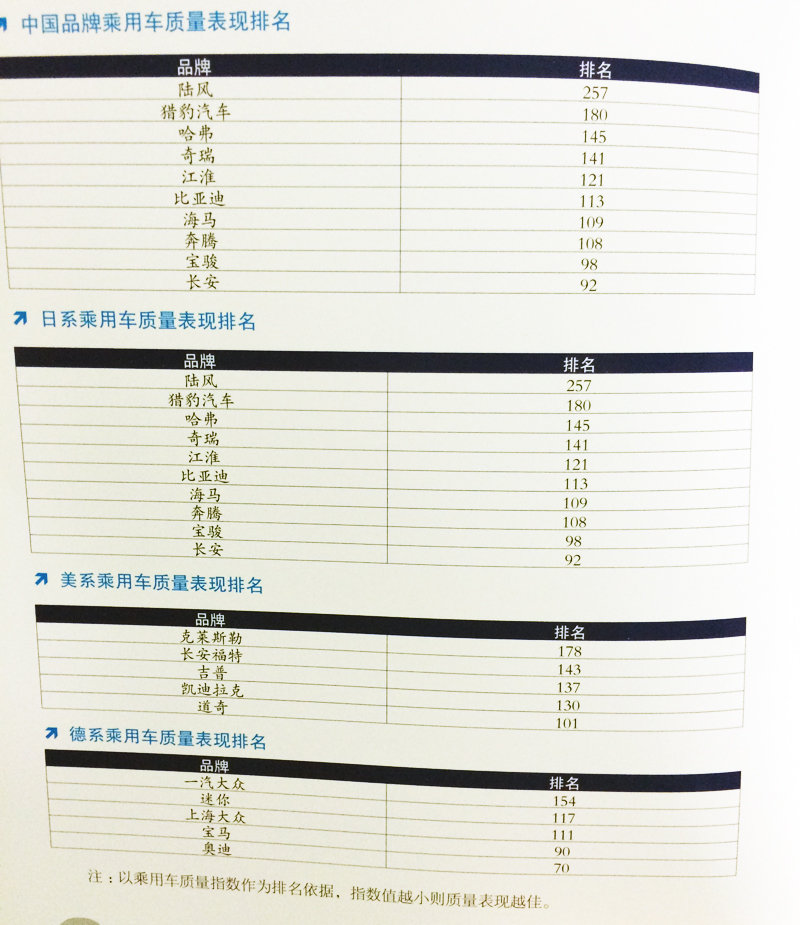 中国品牌乘用车质量表现排名
品牌 排名
陆风 257
猎豹汽车 180
哈弗 145
奇瑞 141
江淮 121
比亚迪 113
海马 109
奔腾 108
宝骏 98
长安 92
日系乘用车质量表现排名
品牌 排名
陆风 257
猎豹汽车 180
哈弗 145
奇瑞 141
江淮 121
比亚迪 113
海马 109
奔腾 108
宝骏 98
长安 92
美系乘用车质量表现排名
品牌 排名
克莱斯勒 178
长安福特 143
吉普 137
凯迪拉克 130
道奇 101
德系乘用车质量表现排名
品牌 排名
一汽大众 154
迷你 117
上海大众 111
宝马 90
奥迪 70
注：以乘用车质量指数作为排名依据，指数值越小则质量表现越佳。